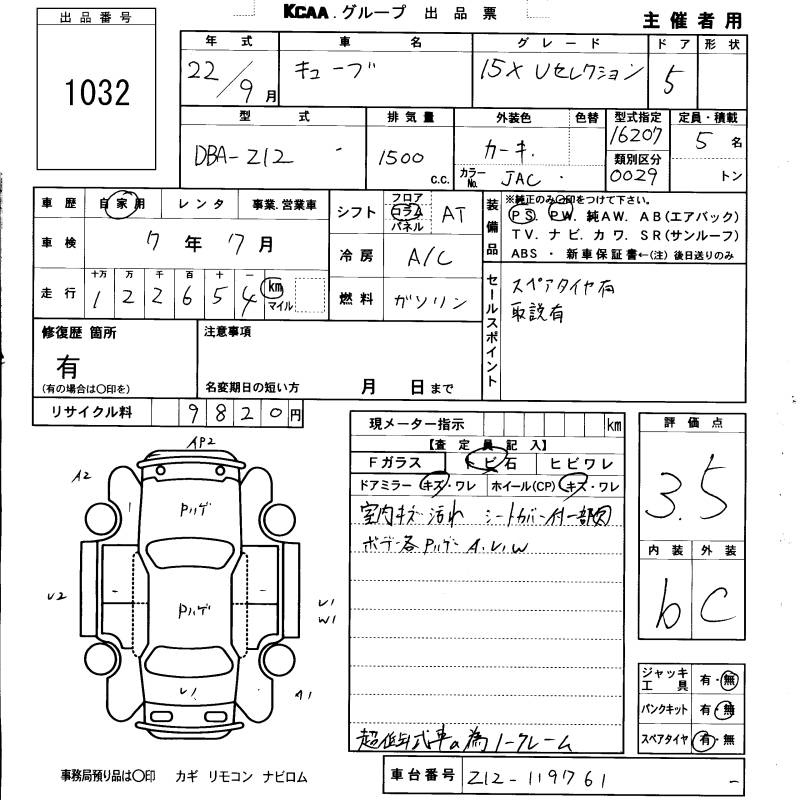 KCAA.グループ 出品票
主催者用
出品番号
1032
年式 車名 グレード ドア 形状
22/9月 キューブ 15X Uセレクション 5
型式 排気量 外装色 色替 型式指定 定員・積載
DBA-Z12 1500 c.c. カーキ. 16207 5名
カラーNo. JAC 類別区分 0029 トン
車歴 自家用 レンタ 事業.営業車
車検 7年7月
走行 十万 万 千 百 十 一
1 2 2 6 5 4 km マイル
シフト フロア コラム パネル AT
冷房 A/C
燃料 ガソリン
装備品
※純正のみ〇印をつけて下さい。
PS. PW. 純AW. AB(エアバック)
TV. ナビ. カワ. SR(サンルーフ)
ABS・新車保証書←(注)後日送りのみ
セールスポイント
スペアタイヤ有
取説有
修復歴 箇所
有
(有の場合は〇印を)
注意事項
名変期日の短い方 月 日まで
リサイクル料 9820円
現メーター指示 km
【査定員記入】
Fガラス トビ石 ヒビワレ
ドアミラー キズ・ワレ ホイール(CP) キズ・ワレ
室内キズ汚れ シートカバー付一部凹
ボデー各Pハゲ A.U.W
超低年式車の為ノークレーム
評価点
3.5
内装 外装
b C
ジャッキ工具 有・無
パンクキット 有・無
スペアタイヤ 有・無
AP2
A2
1
Pハゲ
U2
Pハゲ
U1
W1
U1
A1
事務局預り品は〇印 カギ リモコン ナビロム
車台番号 Z12-119761